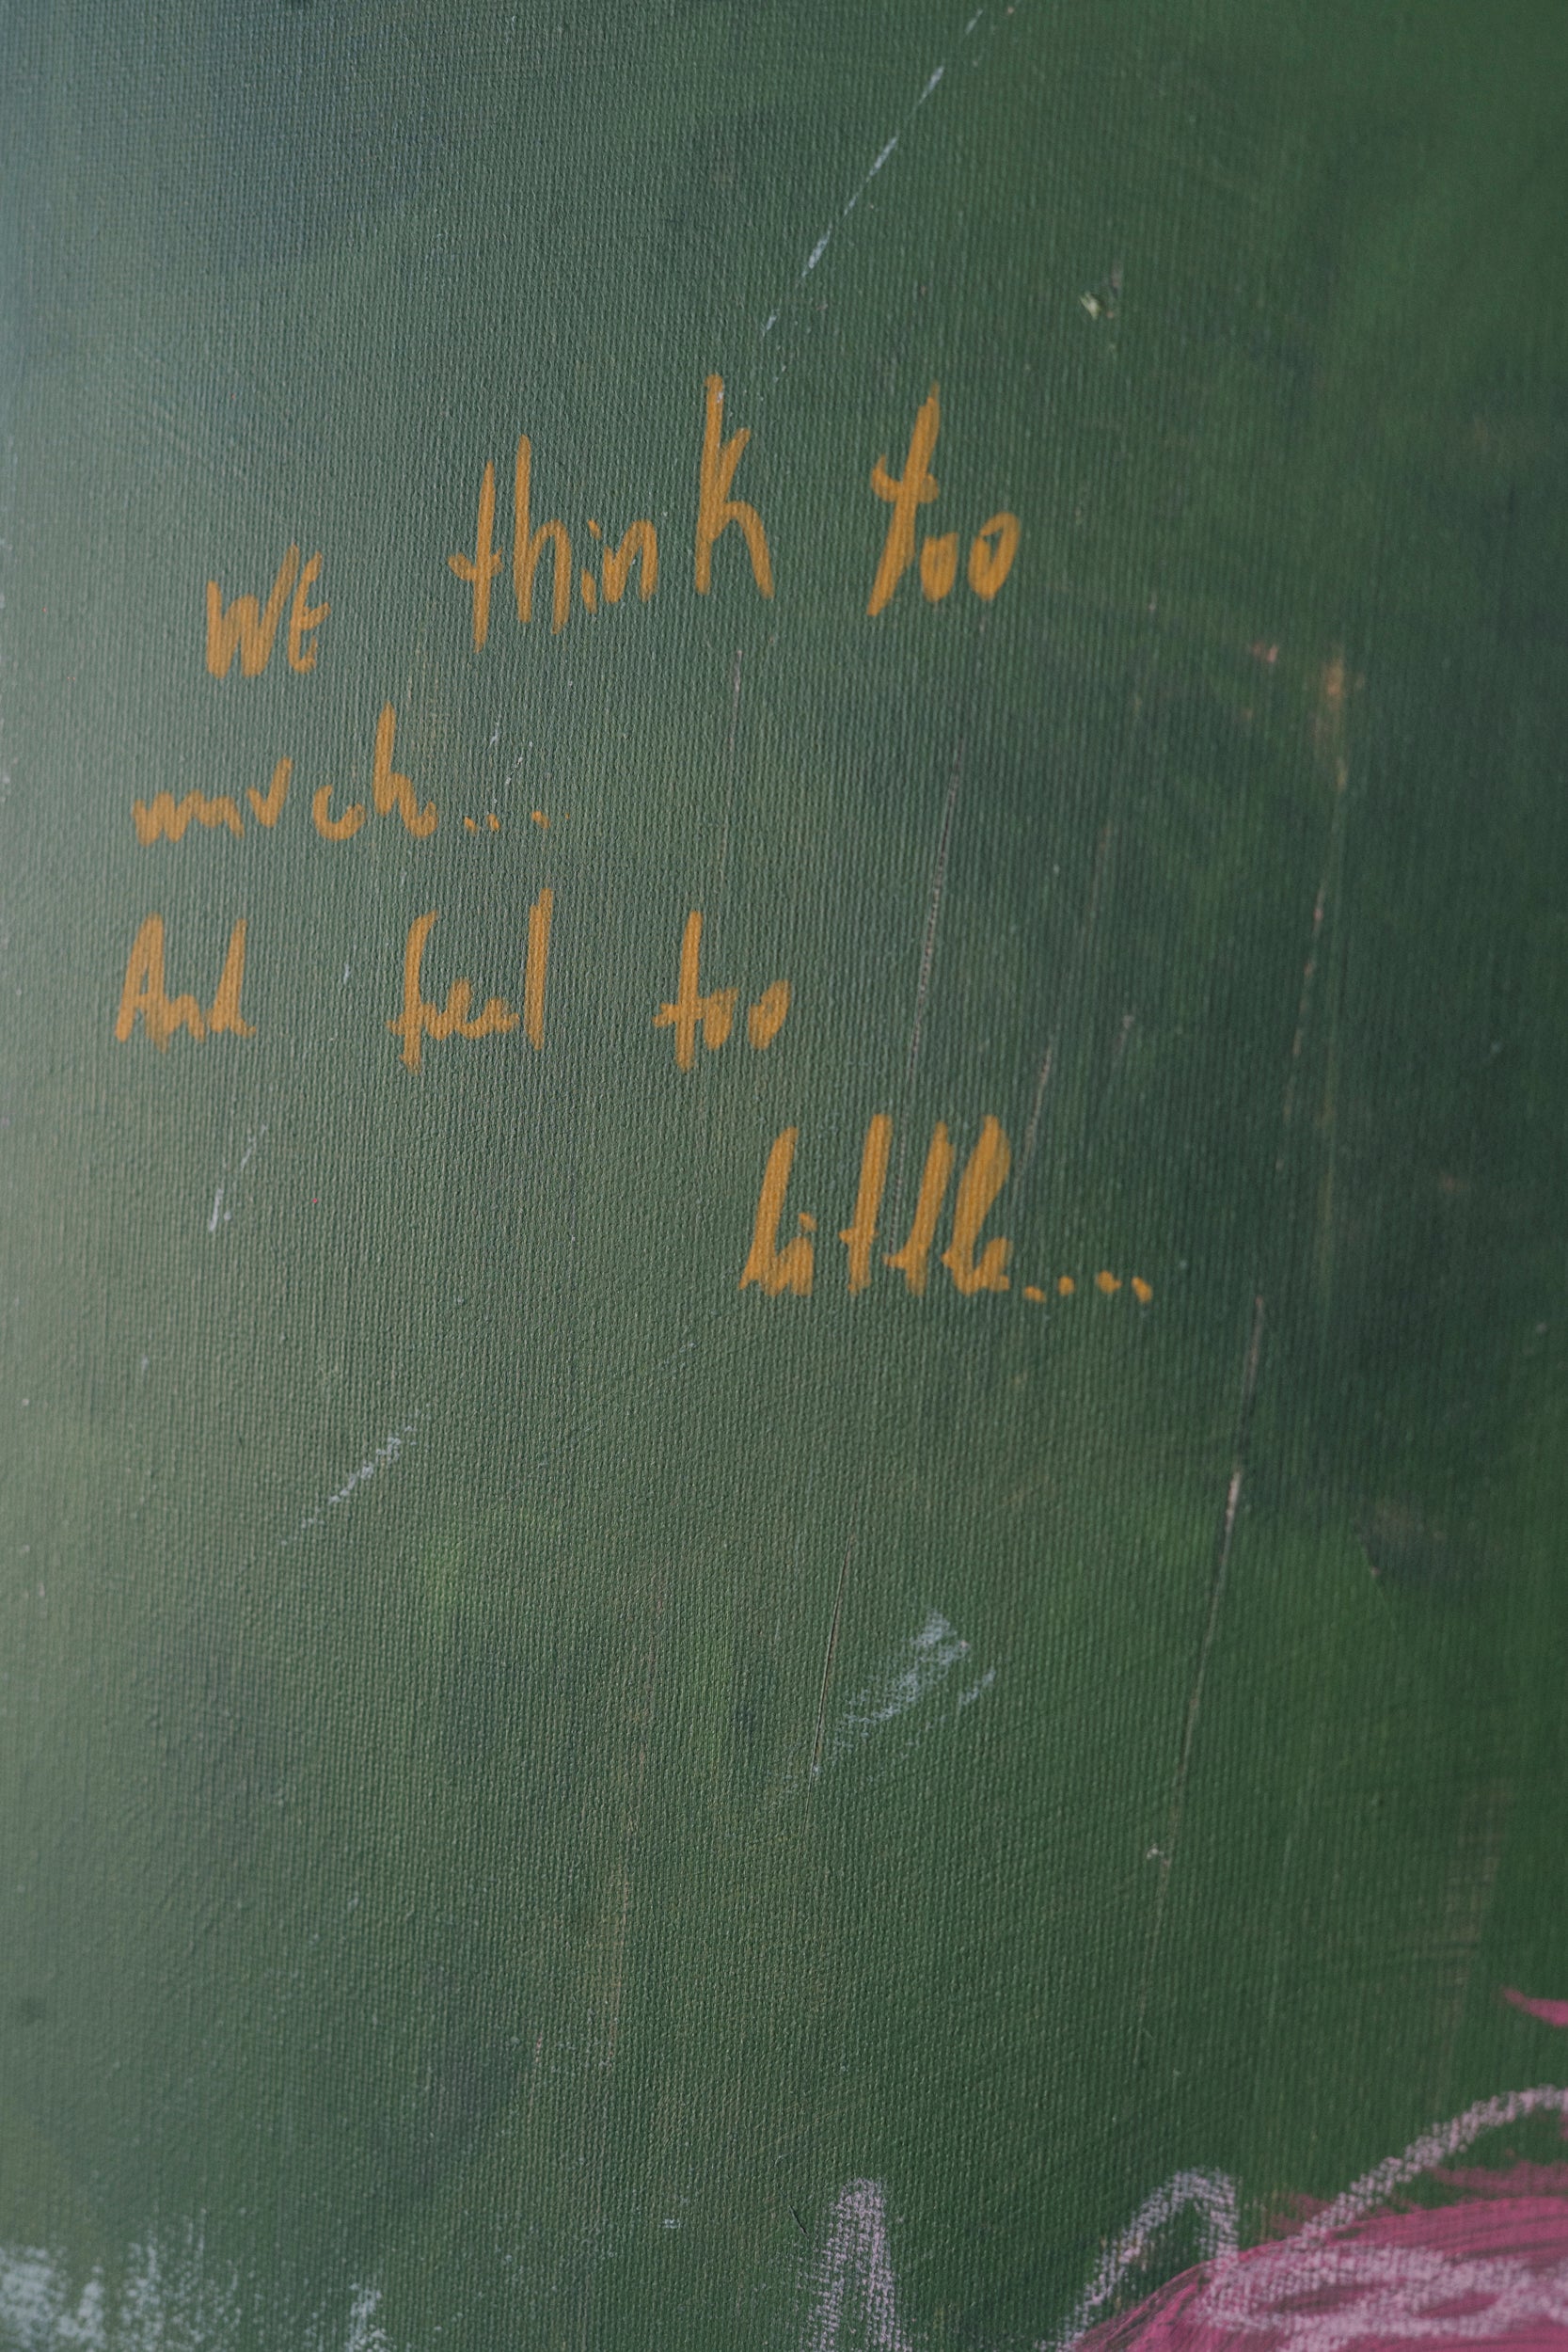 We think too
much...
And feel too
little....